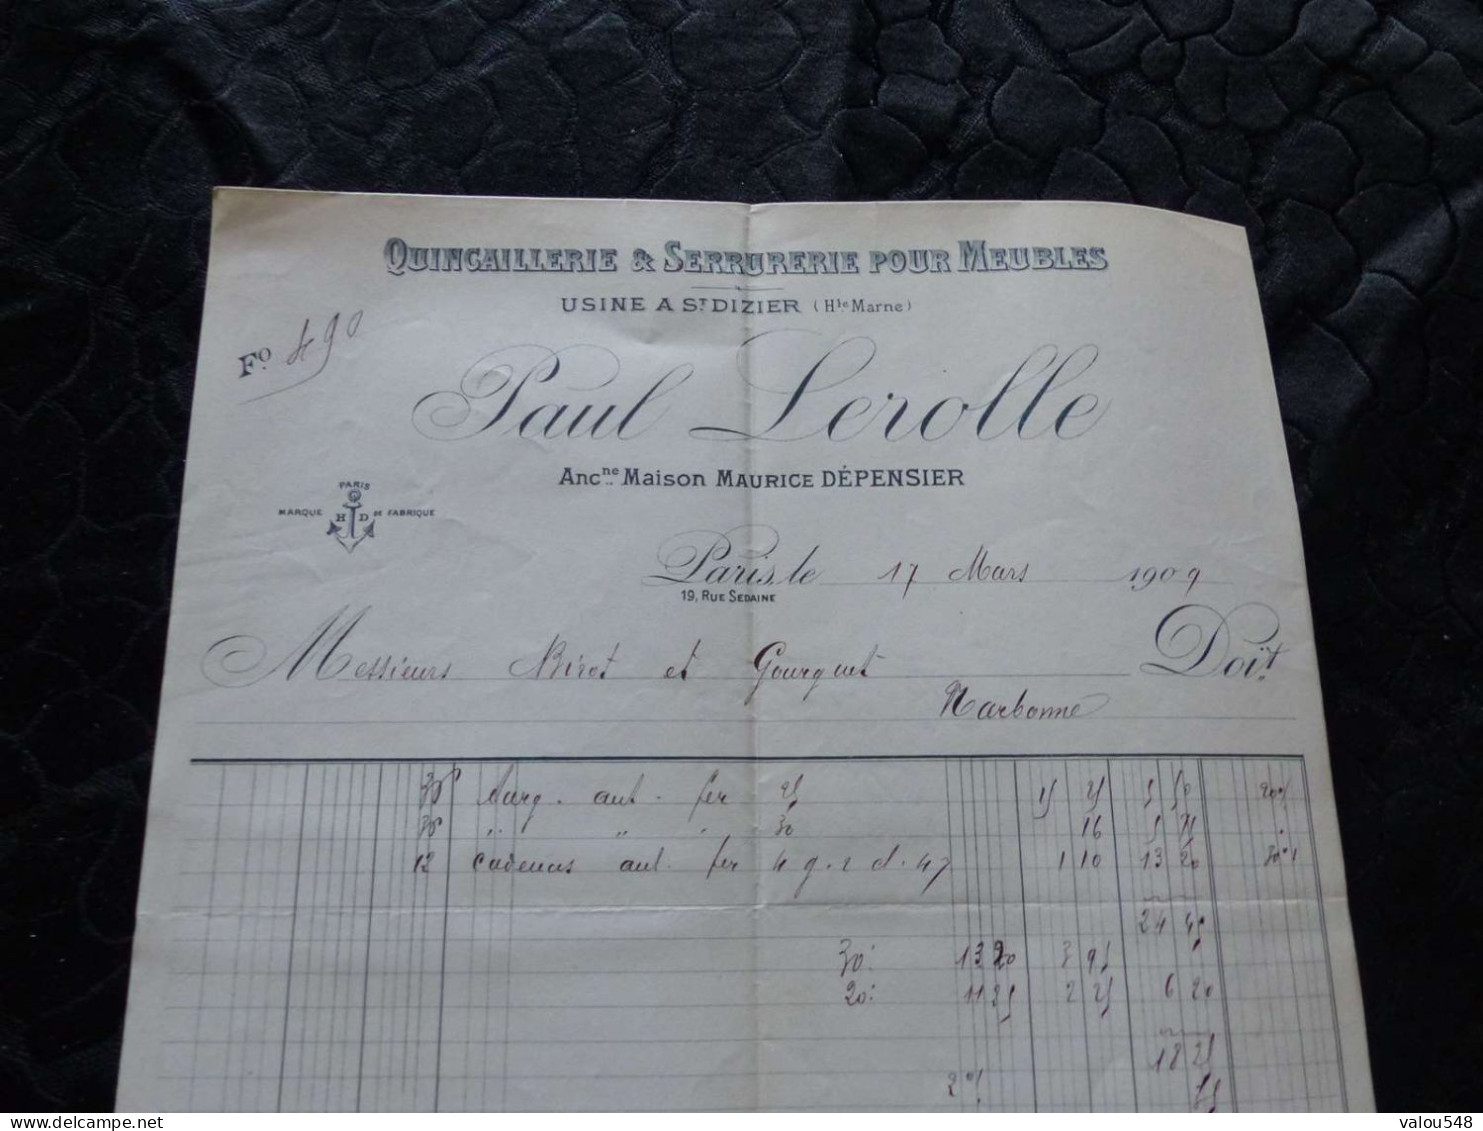 QUINCAILLERIE & SERRURERIE POUR MEUBLES
USINE A ST DIZIER (Hte Marne)
Fo. 490
Paul Lerolle
Ancne Maison MAURICE DÉPENSIER
PARIS
MARQUE H D DE FABRIQUE
Paris, le 17 Mars 1909
19, RUE SEDAINE
Messieurs Birot et Gourguet Doit
Narbonne
30 aut. fer 25 15 25 5 50 20%
30 " " " 30 16 5 75 "
12 cadenas aut. fer 4 g. 2 d. 47 1 10 13 20 30%
24 45
30% 13 20 3 95
20% 11 25 2 25 6 20
18 25
2%
valou548
www.delcampe.net